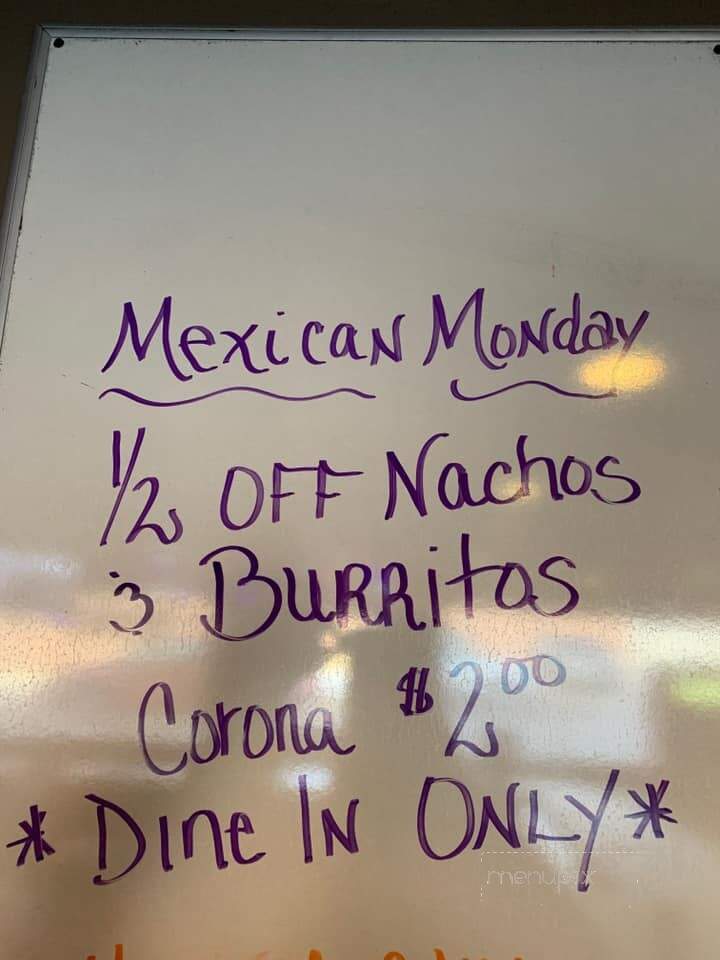 Mexican Monday
1/2 OFF Nachos
& Burritos
Corona $2.00
* Dine In ONLY *
menupix